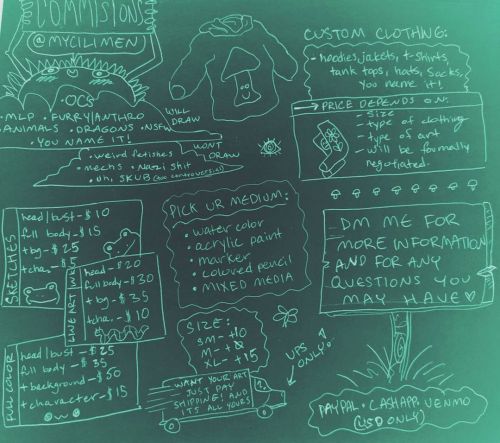 COMMISIONS
@MYCILIMEN
• OCs
• MLP • FURRY/ANTHRO
ANIMALS • DRAGONS • NSFW
• YOU NAME IT!
WILL
DRAW
• weird fetishes
• mechs • Nazi shit
• uh, SKUB (too controversial)
WONT
DRAW
CUSTOM CLOTHING:
• hoodies, jackets, t-shirts,
tank tops, hats, socks,
you name it!
PRICE DEPENDS ON:
- size
- type of clothing
- type of art
- will be formally
negotiated.
SKETCHES
head/bust - $10
full body - $15
+ bg - $25
+ cha. - $5
LINE ART INK
head - $20
full body - $30
+ bg - $35
+ cha. - $10
FULL COLOR
head/bust - $25
full body - $35
+ background - $50
+ character - $15
PICK UR MEDIUM:
• water color
• acrylic paint
• marker
• colored pencil
• MIXED MEDIA
SIZE:
SM - +10
M -
XL - +15
WANT YOUR ART
JUST PAY
SHIPPING! AND
IT'S ALL YOURS
UPS
ONLY!
DM ME FOR
MORE INFORMATION
AND FOR ANY
QUESTIONS YOU
MAY HAVE ♡
PAYPAL • CASHAPP • VENMO
(USD ONLY)